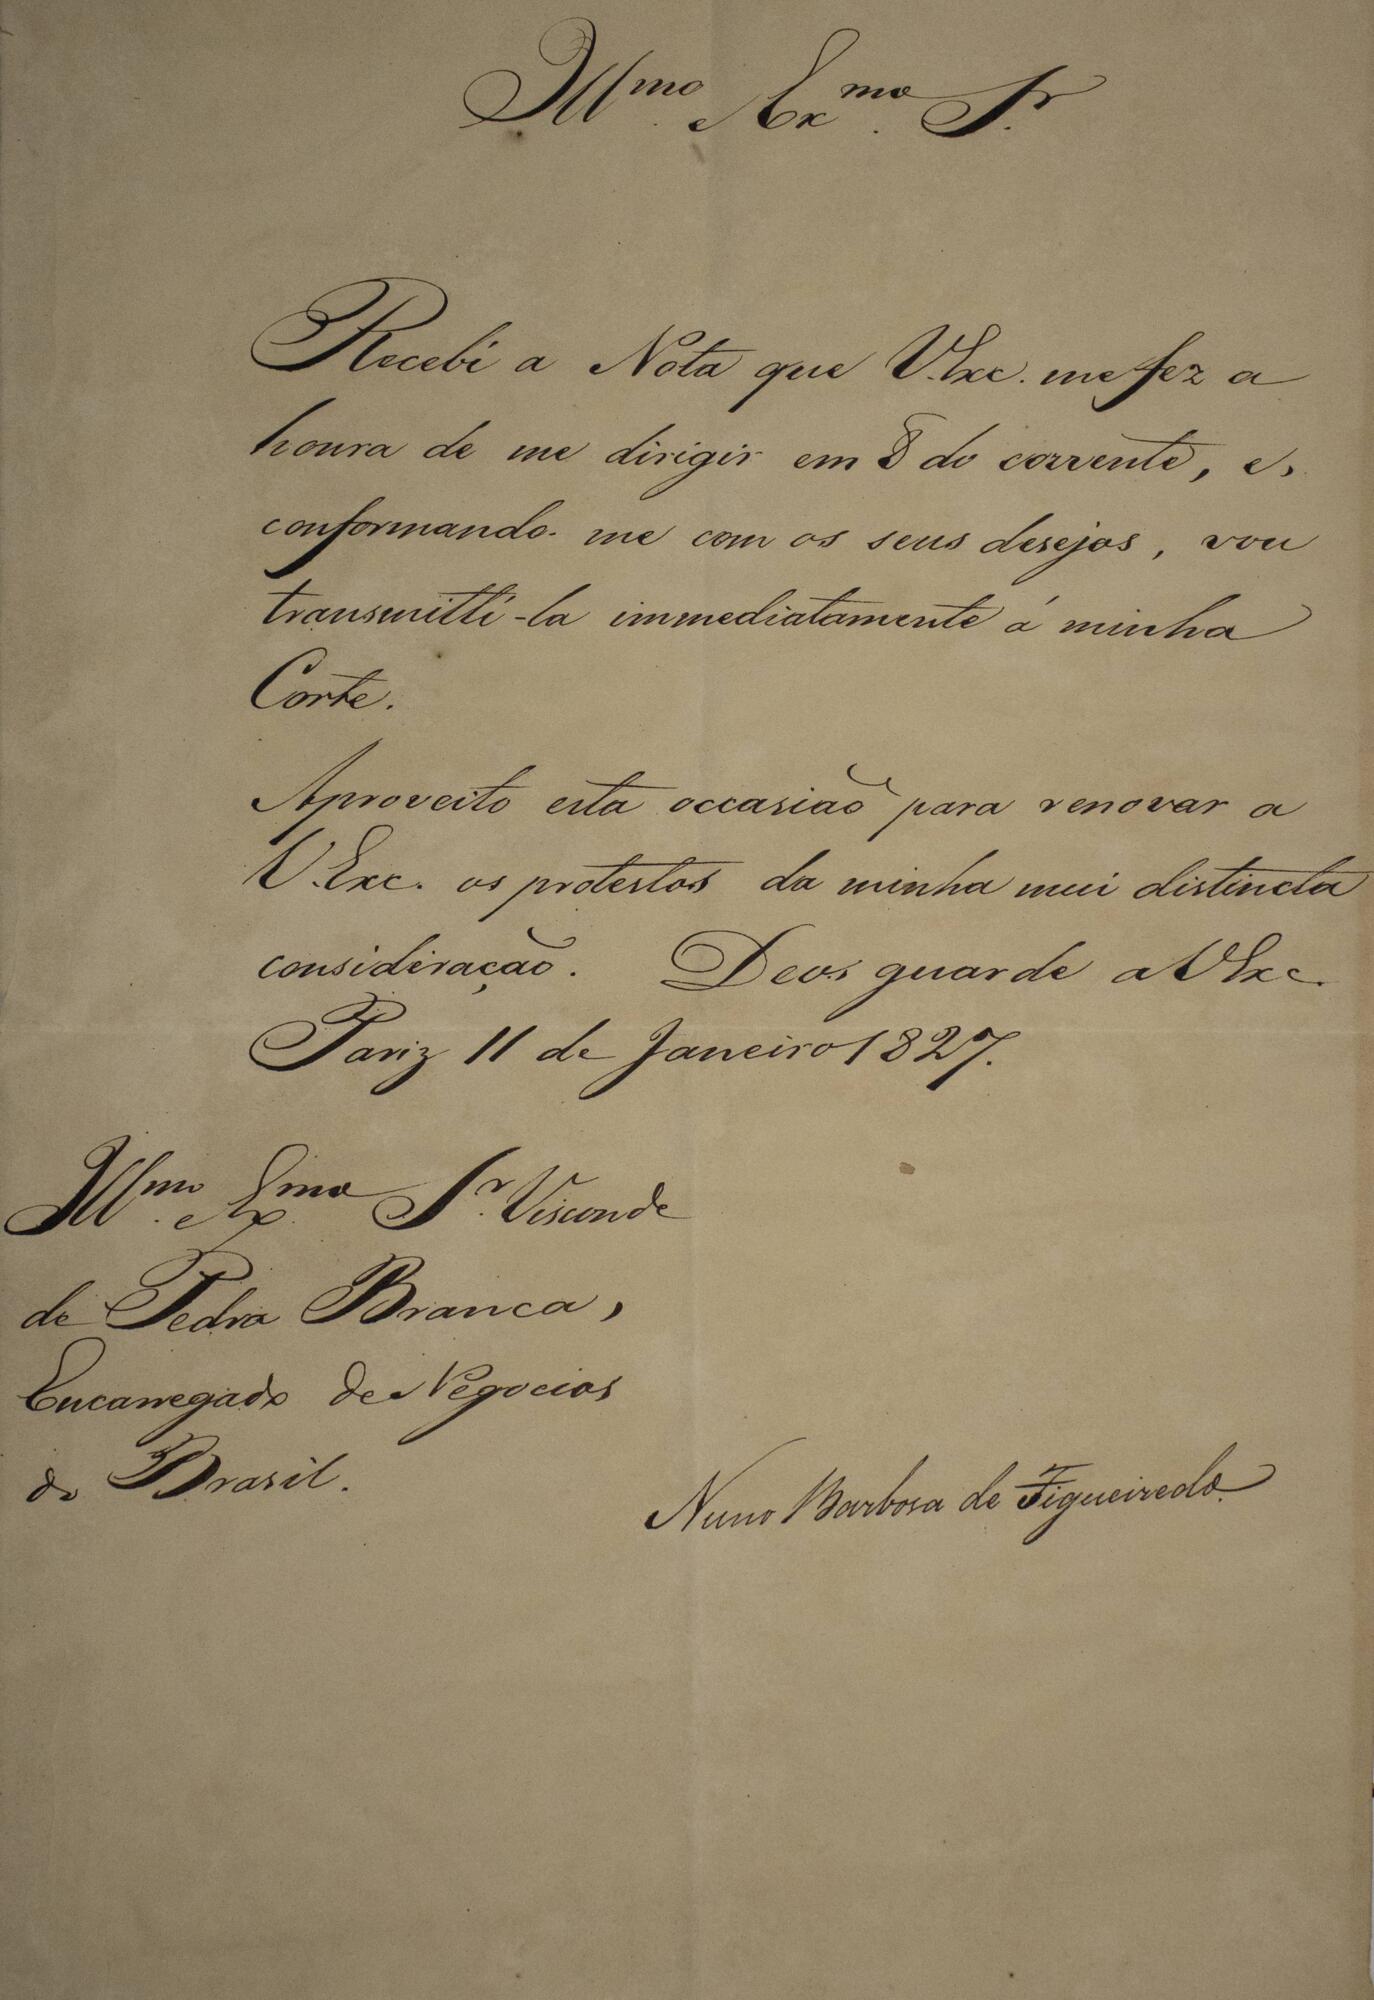 Illmo. e Exmo. Sr.
Recebi a Nota que V.Exc. me fez a
honra de me dirigir em 8 do corrente, e,
conformando-me com os seus desejos, vou
transmitti-la immediatamente á minha
Corte.
Aproveito esta occasião para renovar a
V.Exc. os protestos da minha mui distincta
consideração. Deos guarde a V.Exc.
Pariz 11 de Janeiro 1827.
Illmo. e Exmo. Sr. Visconde
de Pedra Branca,
Encarregado de Negocios
do Brasil.
Nuno Barbosa de Figueiredo.